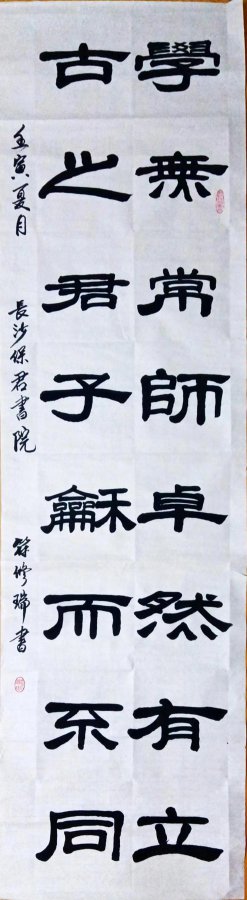 學無常師卓然有立
古之君子龢而不同
壬寅夏月 長沙保君書院 瑞書